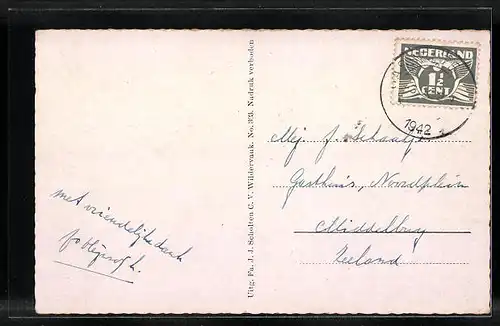 NEDERLAND
1½
CENT
1942
Mej. J. Schaalje
Gasthuis, Noordplein
Middelburg
Zeeland
met vriendelijke dank
Uitg. Fa. J. J. Scholten C. V. Wildervank. No. 373. Nadruk verboden